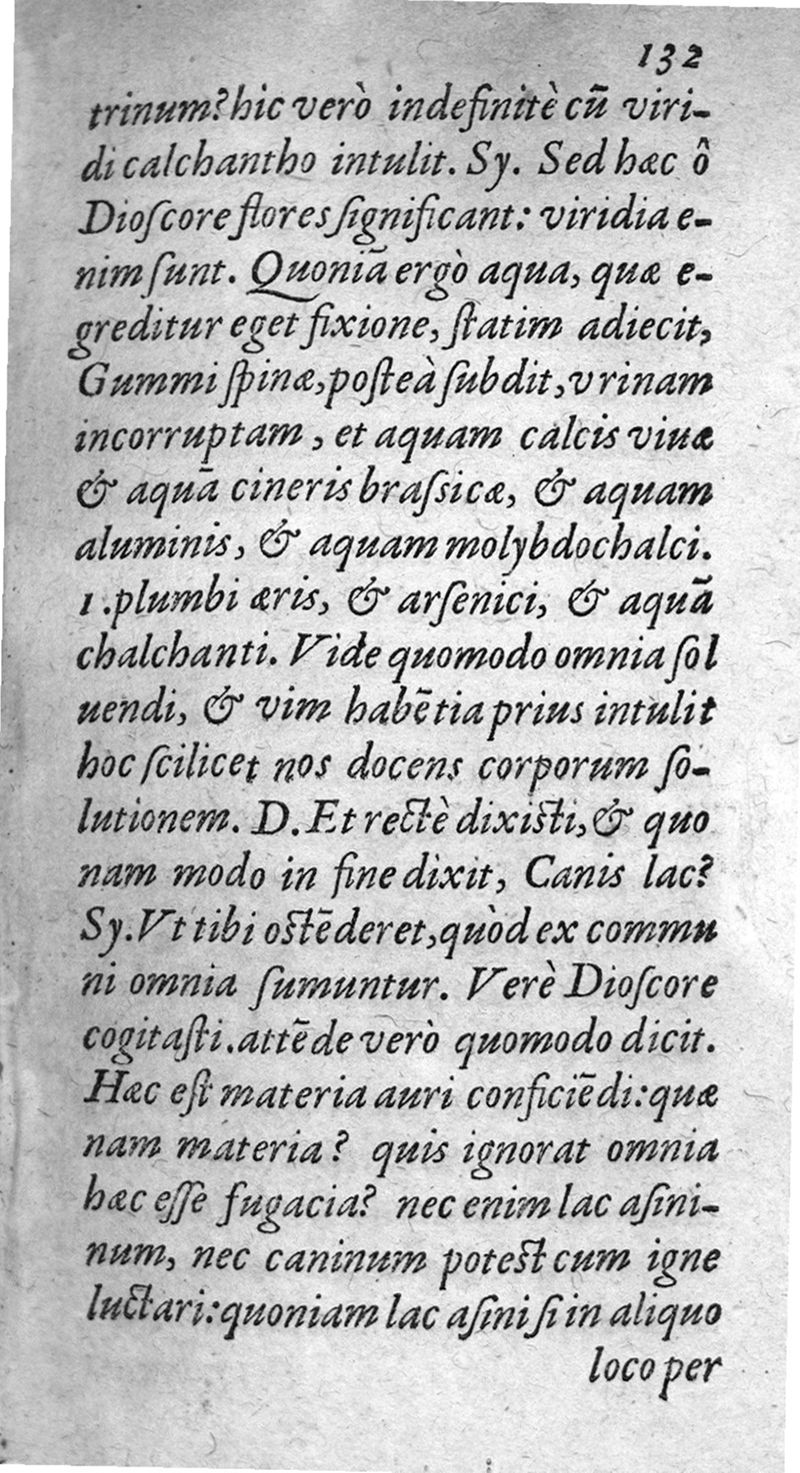 132
trinum? hic verò indefinitè cũ viri-
di calchantho intulit. Sy. Sed hæc ô
Dioſcore flores ſignificant: viridia e-
nim ſunt. Quoniã ergò aqua, quæ e-
greditur eget fixione, ſtatim adiecit,
Gummi ſpinæ, poſteà ſubdit, vrinam
incorruptam, et aquam calcis viuæ
& aquã cineris braſsicæ, & aquam
aluminis, & aquam molybdochalci.
1. plumbi æris, & arſenici, & aquã
chalchanti. Vide quomodo omnia ſol
uendi, & vim habẽtia prius intulit
hoc ſcilicet nos docens corporum ſo-
lutionem. D. Et rectè dixiſti, & quo
nam modo in fine dixit, Canis lac?
Sy. Vt tibi oſtẽderet, quòd ex commu
ni omnia ſumuntur. Verè Dioſcore
cogitaſti. attẽde verò quomodo dicit.
Hæc eſt materia auri conficiẽdi: quæ
nam materia? quis ignorat omnia
hæc eſſe fugacia? nec enim lac aſini-
num, nec caninum poteſt cum igne
luctari: quoniam lac aſini ſi in aliquo
loco per